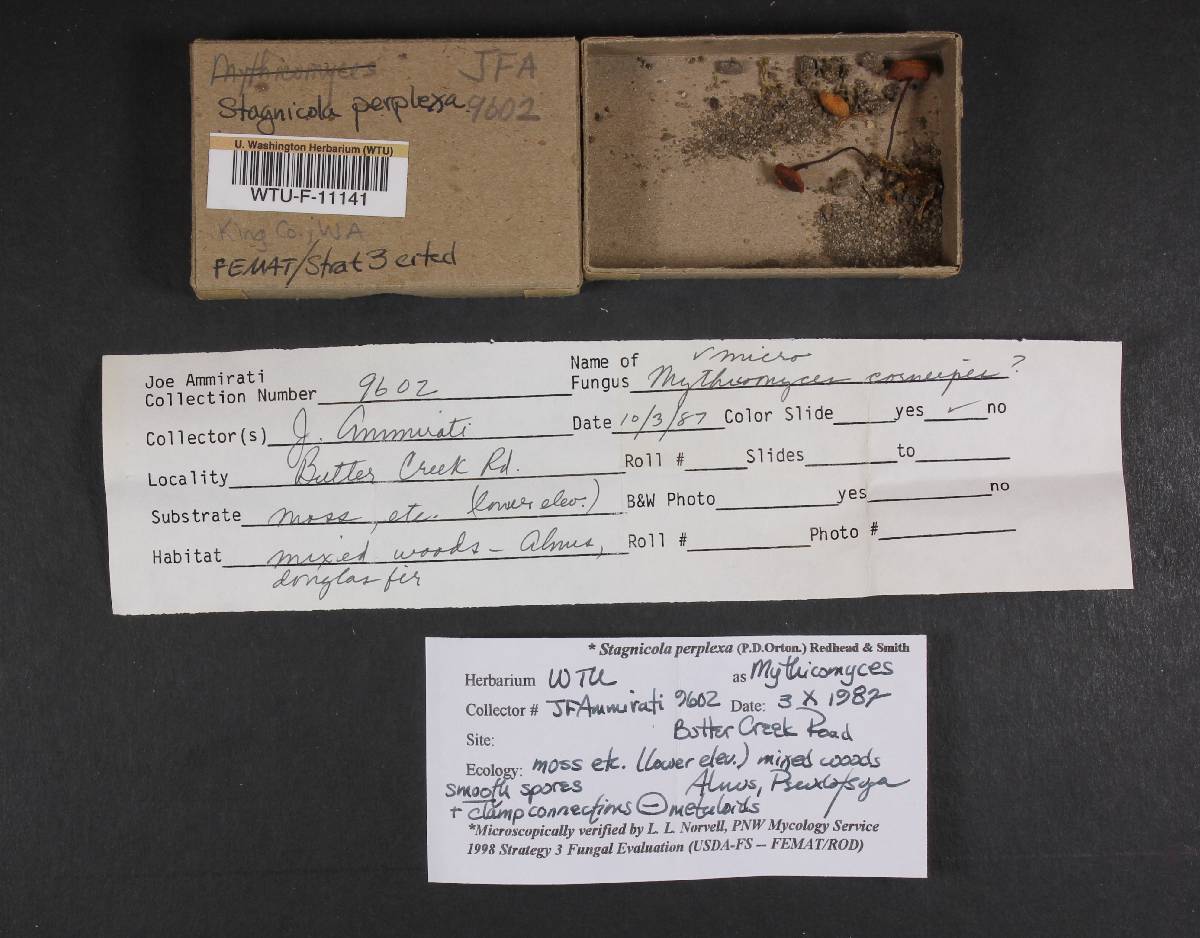 Mythicomyces JFA
Stagnicola perplexa 9602
U. Washington Herbarium (WTU)
WTU-F-11141
King Co., WA
FEMAT/Strat 3 ented
Joe Ammirati
Collection Number 9602
Name of Fungus Mythicomyces corneipes ?
✓ micro
Collector(s) J. Ammirati Date 10/3/87 Color Slide yes ✓ no
Locality Butter Creek Rd. Roll # Slides to
Substrate moss, etc. (lower elev.) B&W Photo yes no
Habitat mixed woods - Alnus, Roll # Photo #
douglas fir
* Stagnicola perplexa (P.D.Orton.) Redhead & Smith
Herbarium WTU as Mythicomyces
Collector # JFAmmirati 9602 Date: 3 X 1987
Site: Butter Creek Road
Ecology: moss etc. (lower elev.) mixed woods
smooth spores Alnus, Pseudotsuga
+ clamp connections ⊖ metuloids
*Microscopically verified by L. L. Norvell, PNW Mycology Service
1998 Strategy 3 Fungal Evaluation (USDA-FS -- FEMAT/ROD)